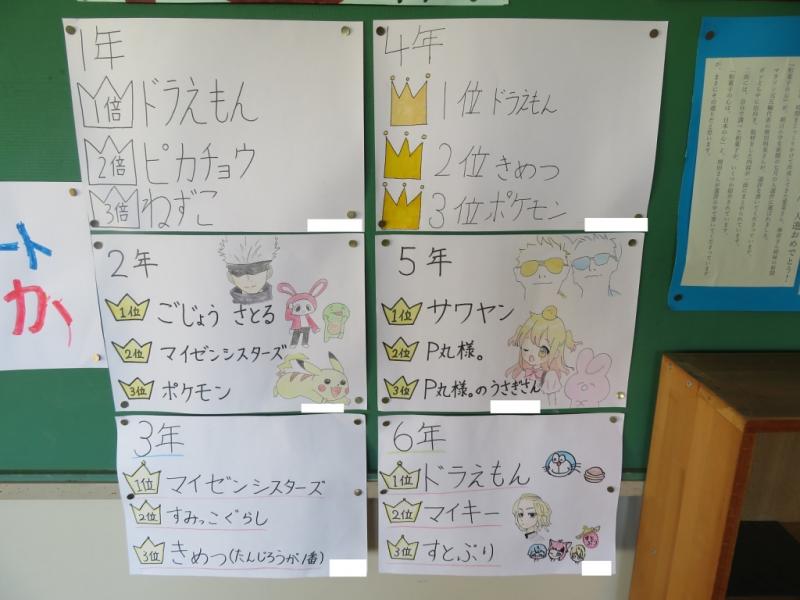 1年
1倍 ドラえもん
2倍 ピカチョウ
3倍 ねずこ
4年
1位 ドラえもん
2位 きめつ
3位 ポケモン
2年
1位 ごじょう さとる
2位 マイゼンシスターズ
3位 ポケモン
5年
1位 サワヤン
2位 P丸様。
3位 P丸様。のうさぎさん
3年
1位 マイゼンシスターズ
2位 すみっこぐらし
3位 きめつ(たんじろうが1番)
6年
1位 ドラえもん
2位 マイキー
3位 すとぷり
ート
か